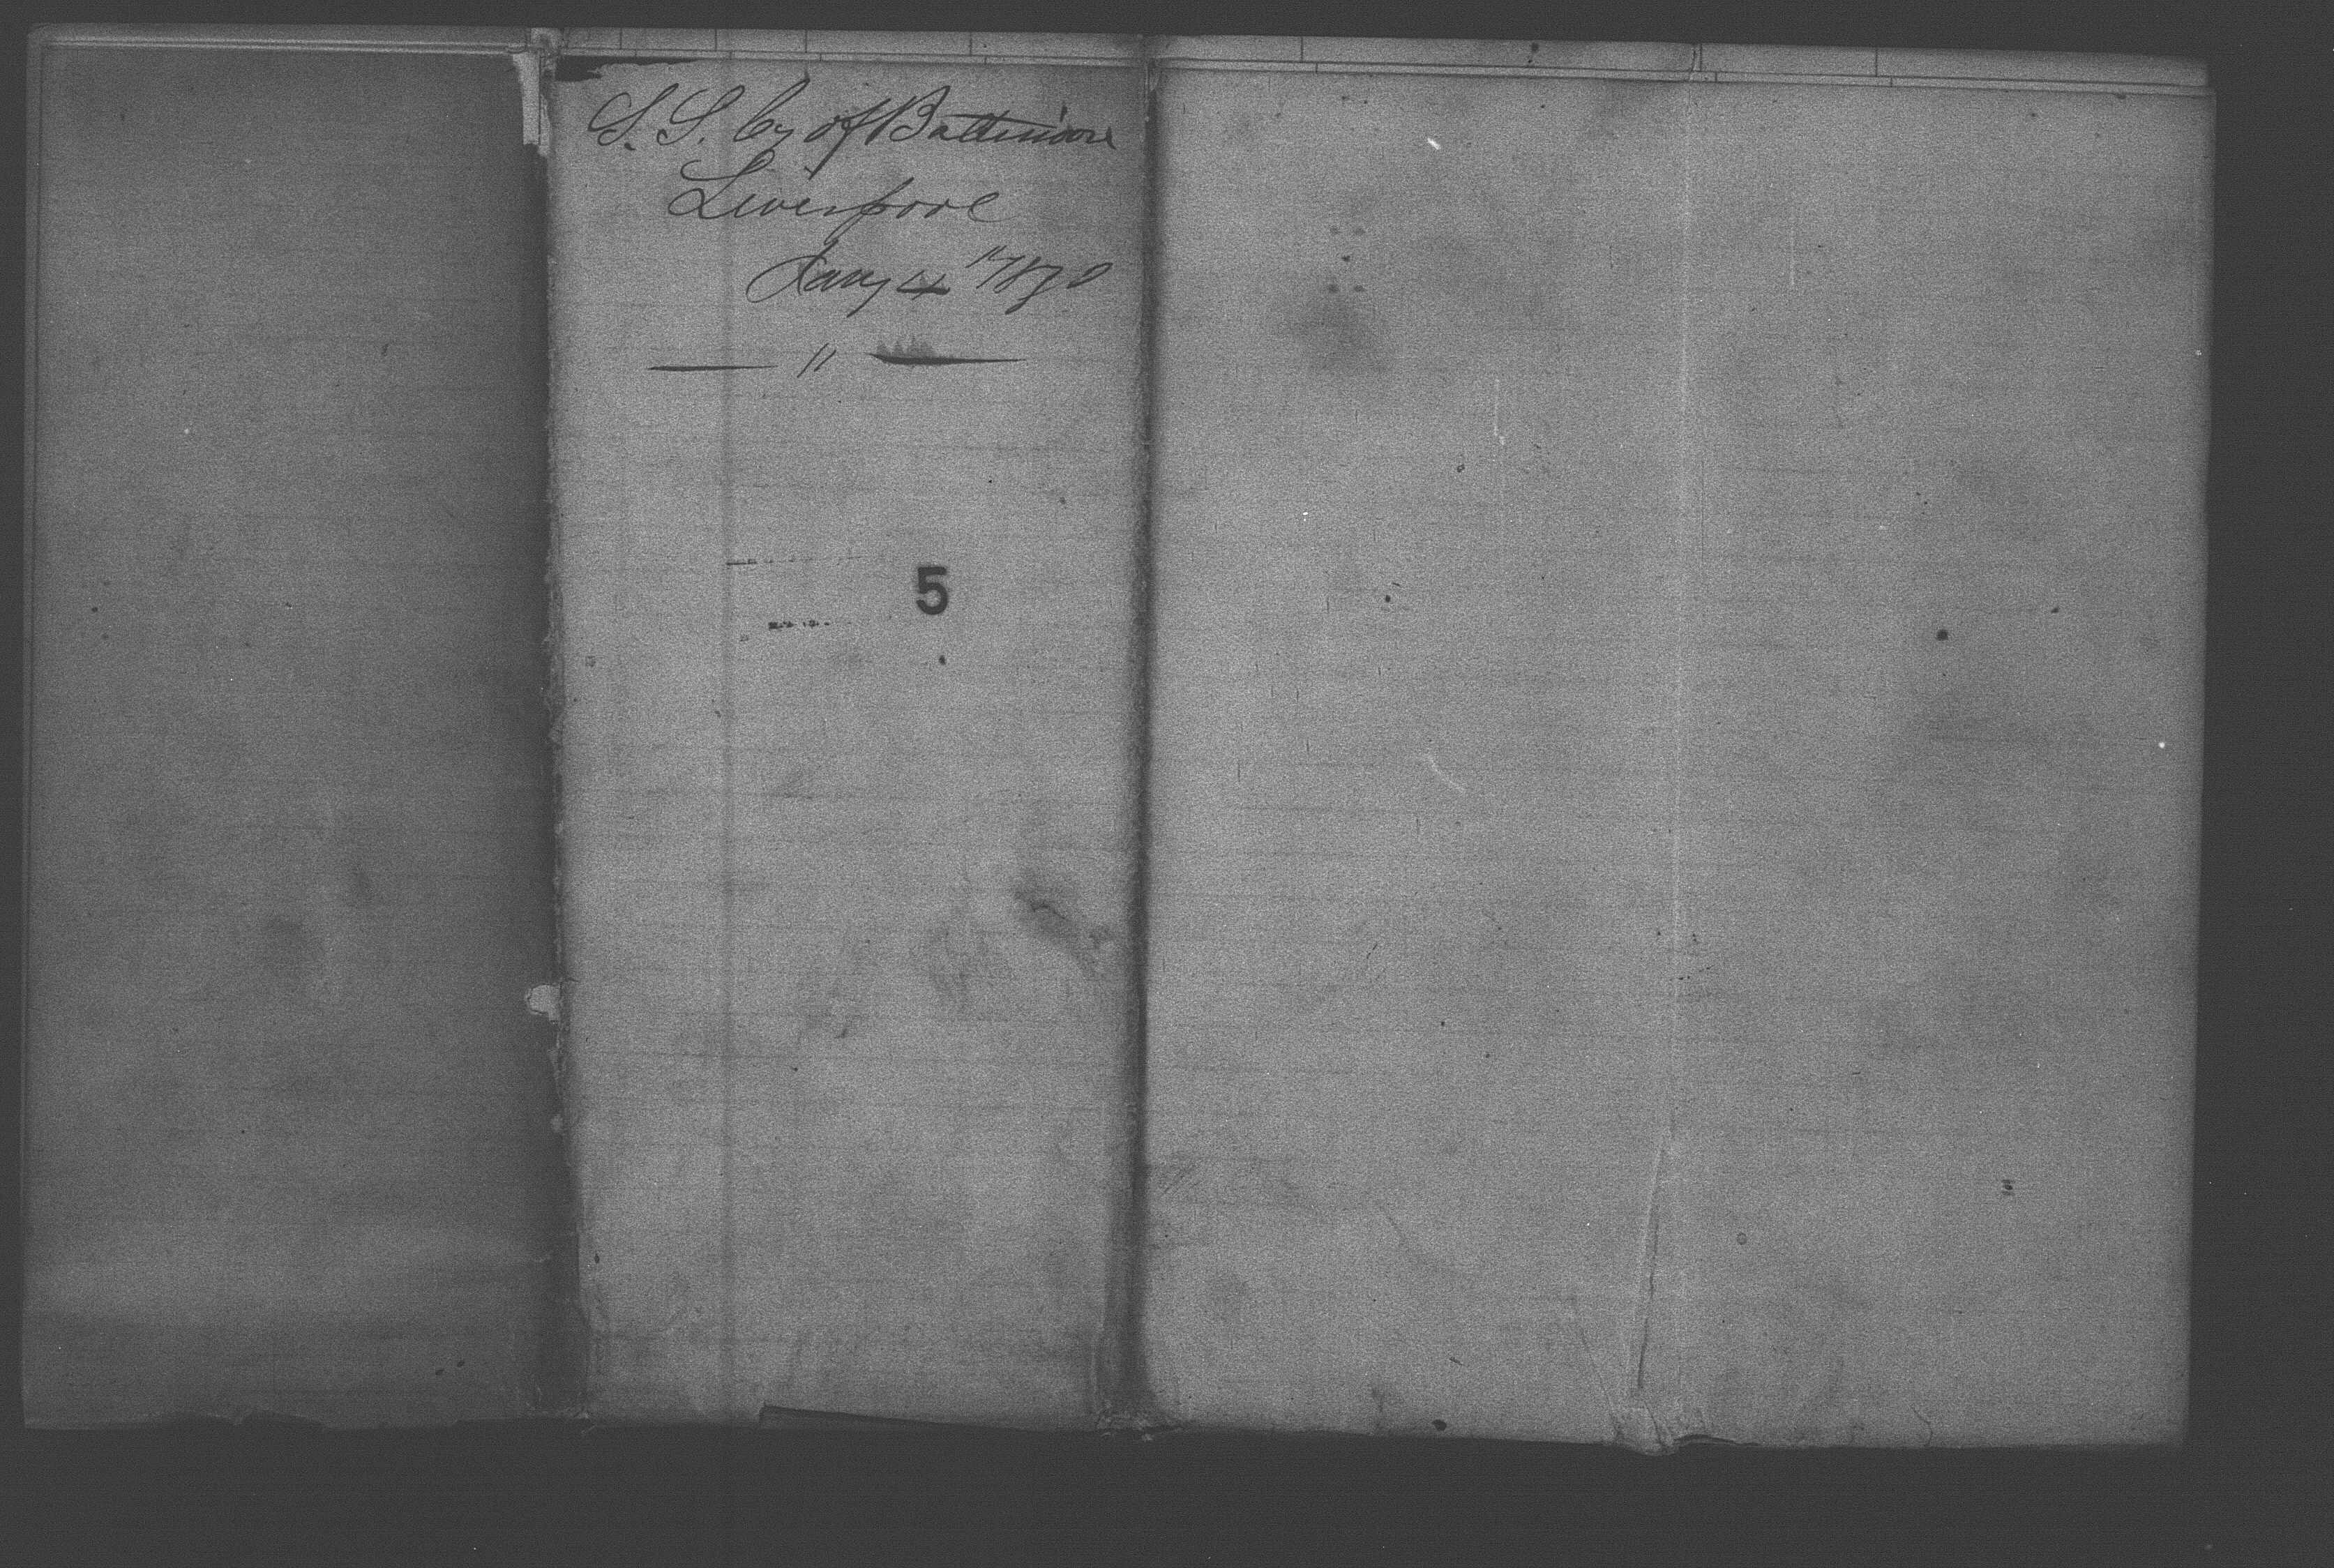 S. S. Cy of Baltimore
Liverpool
Jany 4" 1870
"
5